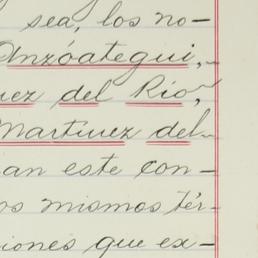 sea, los no-
Anzóategui,
uez del Río,
Martínez del
an este con-
os mismos tér-
iones que ex-